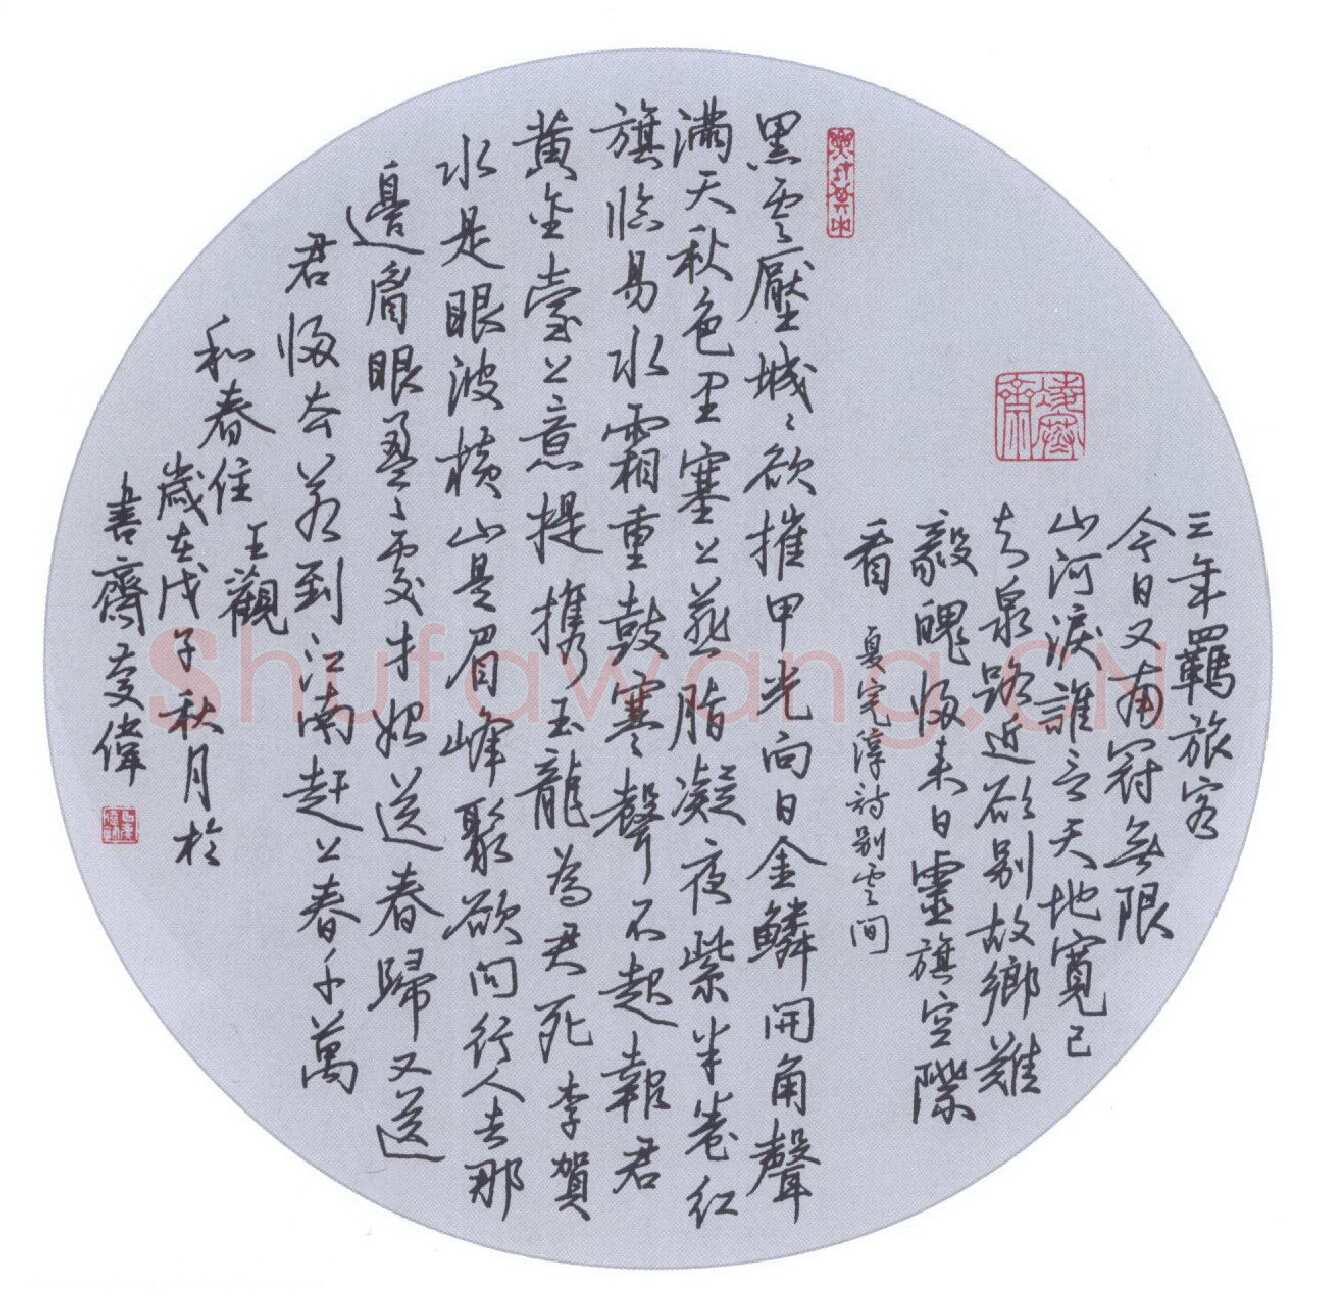 三年羈旅客
今日又南冠無限
山河淚誰言天地寬已
知泉路近欲別故鄉難
毅魄歸來日靈旗空際
看 夏完淳詩別雲間
黑雲壓城々欲摧甲光向日金鱗開角聲
滿天秋色里塞上燕脂凝夜紫半卷紅
旗臨易水霜重鼓寒聲不起報君
黃金臺上意提攜玉龍為君死 李賀
水是眼波橫山是眉峰聚欲問行人去那
邊眉眼盈々處才始送春歸又送
君歸去若到江南趕上春千萬
和春住 王觀
歲在戊子秋月於
書齋 偉
shufawang.cn